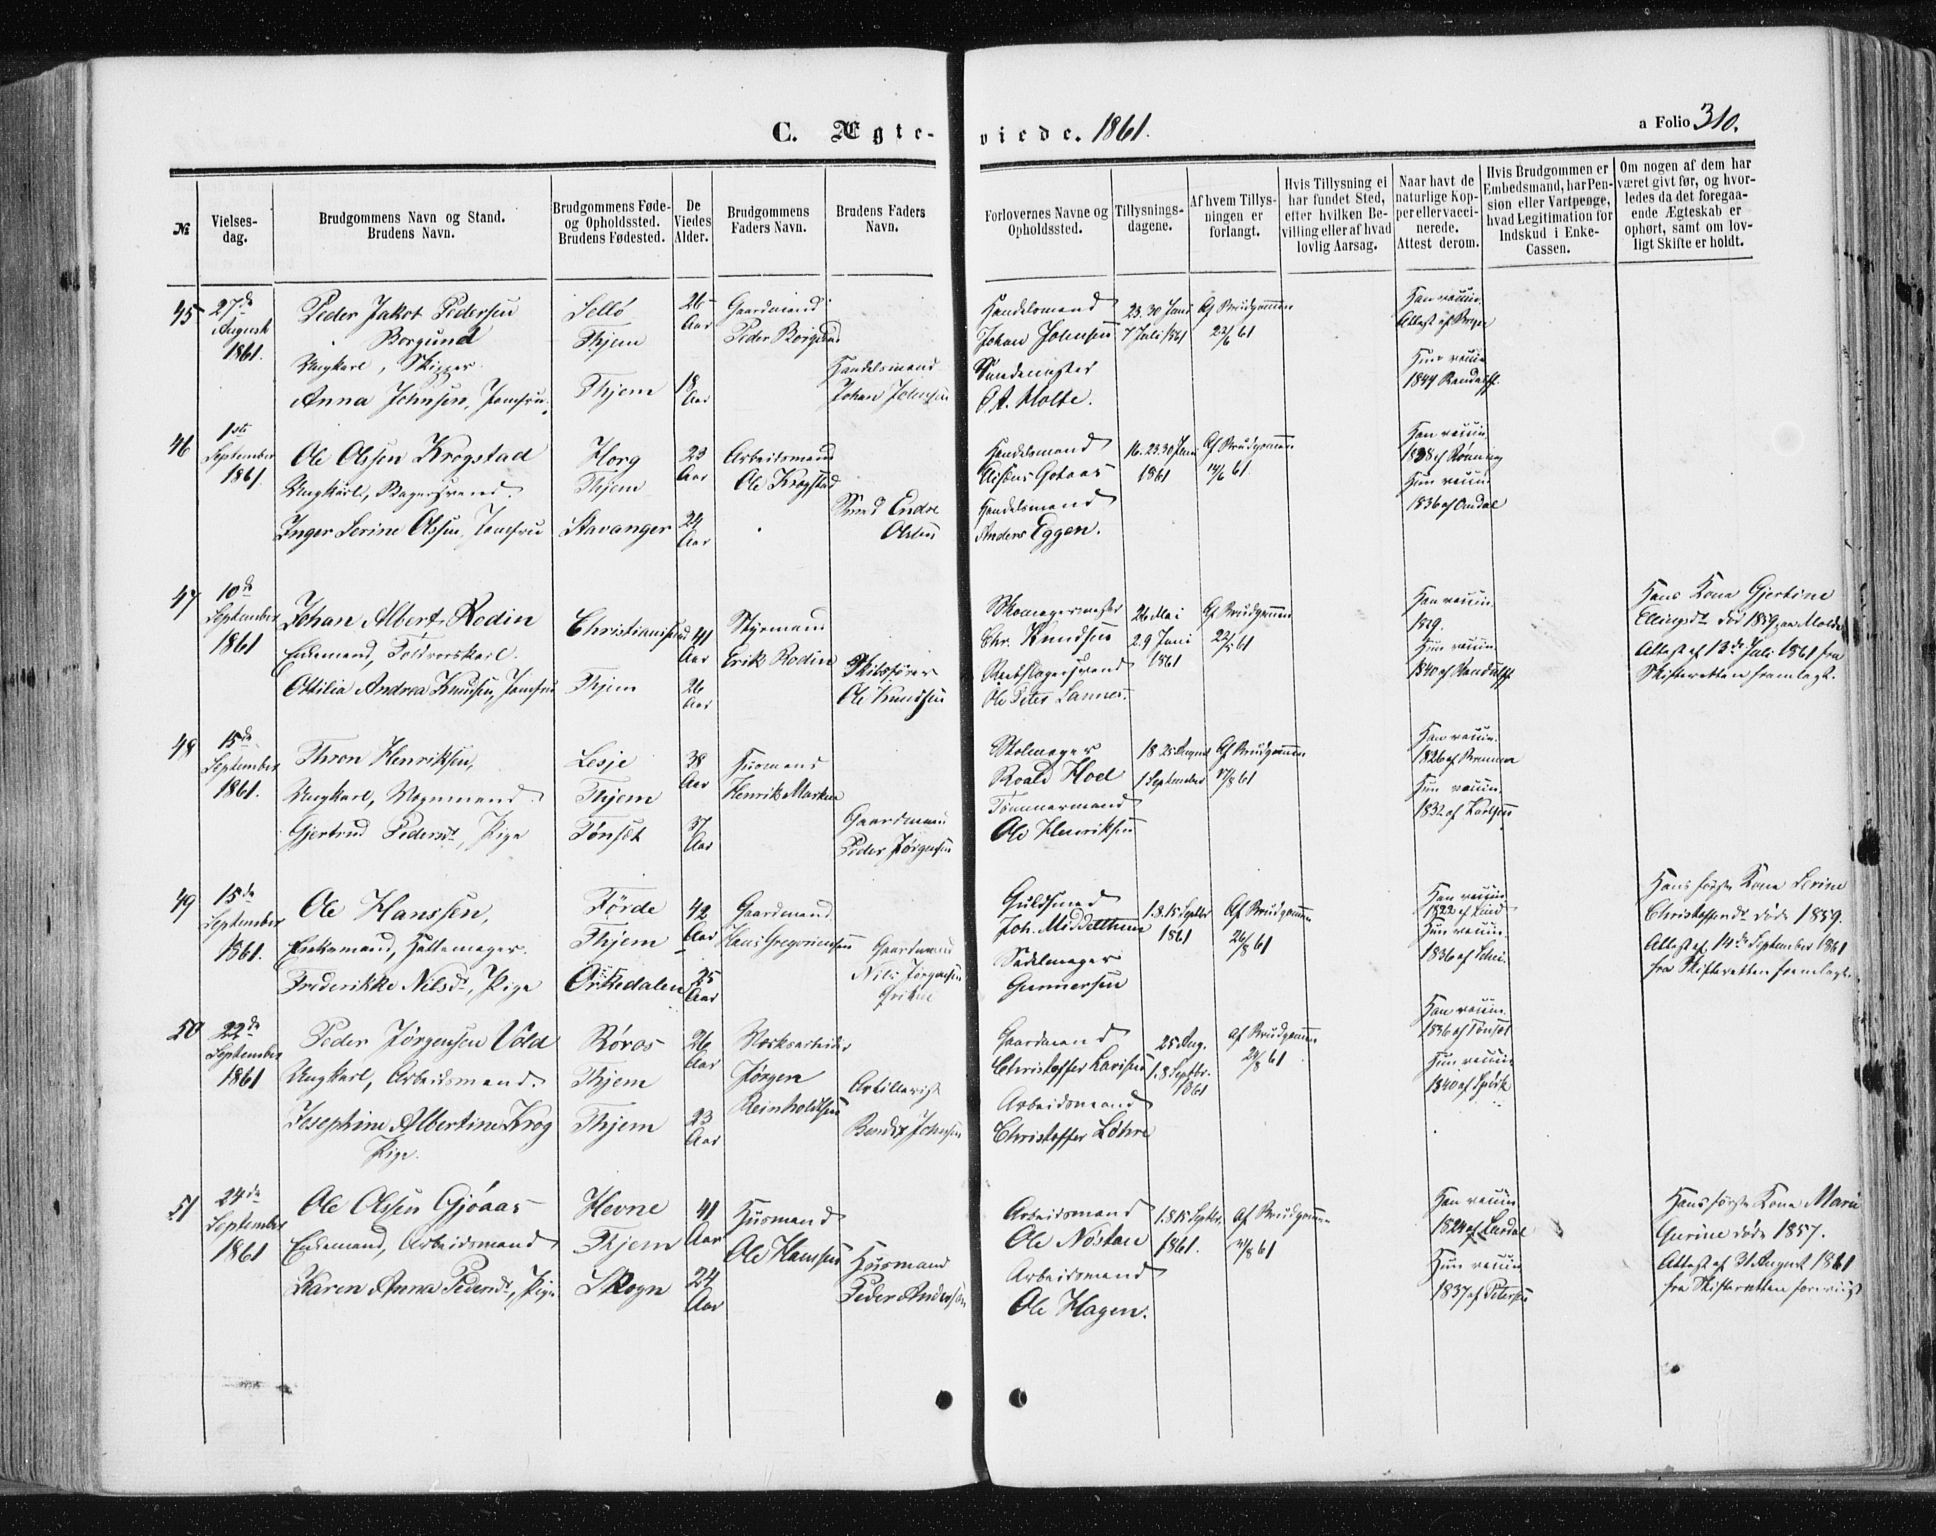 C. Ægte-viede. 1861.
a Folio 310.
№
Vielses-dag.
Brudgommens Navn og Stand.
Brudens Navn.
Brudgommens Føde-og Opholdssted.
Brudens Fødested.
De Viedes Alder.
Brudgommens Faders Navn.
Brudens Faders Navn.
Forlovernes Navne og Opholdssted.
Tillysnings-dagene.
Af hvem Tillysningen er forlangt.
Hvis Tillysning ei har fundet Sted, efter hvilken Bevilling eller af hvad lovlig Aarsag.
Naar havt de naturlige Kopper eller vaccinerede. Attest derom.
Hvis Brudgommen er Embedsmand, har Pension eller Vartpenge, hvad Legitimation for Indskud i Enke-Cassen.
Om nogen af dem har været givt før, og hvorledes da det foregaaende Ægteskab er ophørt, samt om lovligt Skifte er holdt.
45
27de August 1861.
Peder Jakob Pedersen
Borgund
Ungkarl, Skipper
Anna Johnsen, Jomfru
Thjem
Thjem
26 Aar
18 Aar
Gaardmand
Peder Borgund
Handelsmand
Johan Johnsen
Handelsmand
Johan Johnsen
O. A. Molte.
23. 30 Juni
7 Juli 1861
Af Brudgommen
22/6 61
Han vaccin.
Hun vaccin
1844
46
1ste September 1861
Ole Olssen Krogstad
Ungkarl, Bagersvend
Inger Serine Olssen, Jomfru
Horg
Thjem
Stavanger
23 Aar
24 Aar
Arbeidsmand
Ole Krogstad
Smed Endre
Olsen
Handelsmand
Handelsmand
Anders Eggen.
16. 23. 30 Juni
1861
Af Brudgommen
14/6 61
Han vaccin
1838 af Rønning
Hun vaccin
1836 af
47
10de September 1861
Johan Albert Rodin
Enkemand, Toldvorskarl.
Ottilia Andrea Knudsen, Jomfru
Christiansund
Thjem
41 Aar
26 Aar
Styrmand
Erik Rodin
Skibsfører
Ole Knudsen
Skomagermester
Chr. Knudsen
Rebslagersvend
Ole Peter
26 Mai
2. 9 Juni
1861
Af Brudgommen
22/5 61
Han vaccin
Hun vaccin
1840 af
Hans Kone Gjertine
død 1859 paa Molde
Attest af 13de Juli 1861 fra
Skifteretten fremlagt.
48
15de September 1861.
Thron Henriksen,
Ungkarl, Vognmand
Gjertrud Pedersdt, Pige
Lesje
Thjem
Tønset
38 Aar
37 Aar
Husmand
Henrik
Gaardmand
Peder Jørgensen
Skomager
Roald Hoel
Tømmermand
Ole Henriksen
18. 25. August
1 September
Af Brudgommen
17/8 61
Han vaccin.
1826 af
Hun vaccin.
1832 af
49
15de September 1861.
Ole Hanssen,
Enkemand, Hattemager.
Frederikke Nilsdt, Pige
Førde
Thjem
Orkedalen
42 Aar
25 Aar
Gaardmand
Hans Gregoriussen
Gaardmand
Nils Jørgensen
Guldsmed
Joh. Middelthun
Sadelmager
Gunnersen
1. 8. 15 Septbr
1861
Af Brudgommen
26/8 61
Han vaccin
1822 af Lind
Hun vaccin
1836 af
Hans første Kone Serine
døde 1859.
Attest af 14de September 1861
fra Skifteretten fremlagt
50
22de September 1861
Peder Jørgensen Vold
Ungkarl, Arbeidsmand.
Josephine Albertine Krog
Pige.
Røros
Thjem
Thjem
26 Aar
23 Aar
Jørgen
Reinholdtsen
Artillerist
Bendix Johnsen
Gaardmand
Christoffer Larsen
Arbeidsmand
Christoffer Löhre
25 Aug.
1. 8 Septbr.
1861
Af Brudgommen
24/8 61
Han vaccin.
1836 af Tønset
Hun vaccin
1840 af
51
24de September 1861
Ole Olssen Gjøaas
Enkemand, Arbeidsmand
Karen Anna Pedersdt, Pige
Hevne
Thjem
Skogn
41 Aar
24 Aar
Husmand
Ole Hanssen
Husmand
Peder Andersen
Arbeidsmand
Ole Nöstan
Arbeidsmand
Ole Hagen.
1. 8 15 Septbr.
1861.
Af Brudgommen
Han vaccin
1824 af
Hun vaccin
1837 af Petersen
Hans første Kone Marie
Gurine døde 1857.
Attest af 31 August 1861
fra Skifteretten